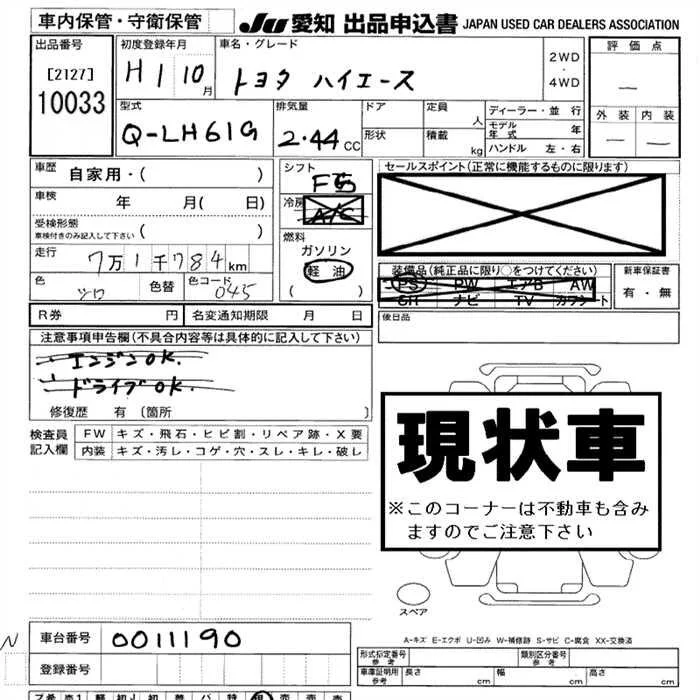 車内保管・守衛保管
JU 愛知 出品申込書 JAPAN USED CAR DEALERS ASSOCIATION
出品番号
[2127]
10033
初度登録年月
H1 10月
車名・グレード
トヨタ ハイエース
2WD
・
4WD
評価点
—
外装 内装
— —
型式
Q-LH61G
排気量
2.44 CC
ドア
形状
定員 人
積載 kg
ディーラー・並行
モデル年式 年
ハンドル 左・右
車歴 自家用・( )
車検 年 月( 日)
受検形態
車検付きのみ記入して下さい ( )
走行 7万1千784km
色 シロ
色替
色コード 045
シフト F5
冷房 A/C
燃料
ガソリン
軽油
( )
セールスポイント(正常に機能するものに限ります)
装備品(純正品に限り○をつけてください)
PS PW エアB AW
SH ナビ TV カワシート
新車保証書
有・無
R券 円
名変通知期限 月 日
後日品
注意事項申告欄(不具合内容等は具体的に記入して下さい)
エンジンOK.
ドライブOK.
修復歴 有 〔箇所 〕
検査員記入欄
FW キズ・飛石・ヒビ割・リペア跡・X要
内装 キズ・汚レ・コゲ・穴・スレ・キレ・破レ
現状車
※このコーナーは不動車も含み
ますのでご注意下さい
スペア
A-キズ E-エクボ U-凹み W-補修跡 S-サビ C-腐食 XX-交換済
N
車台番号 0011190
登録番号
形式指定番号
参考
類別区分番号
参考
車庫証明用
参考
長さ cm 幅 cm 高さ cm